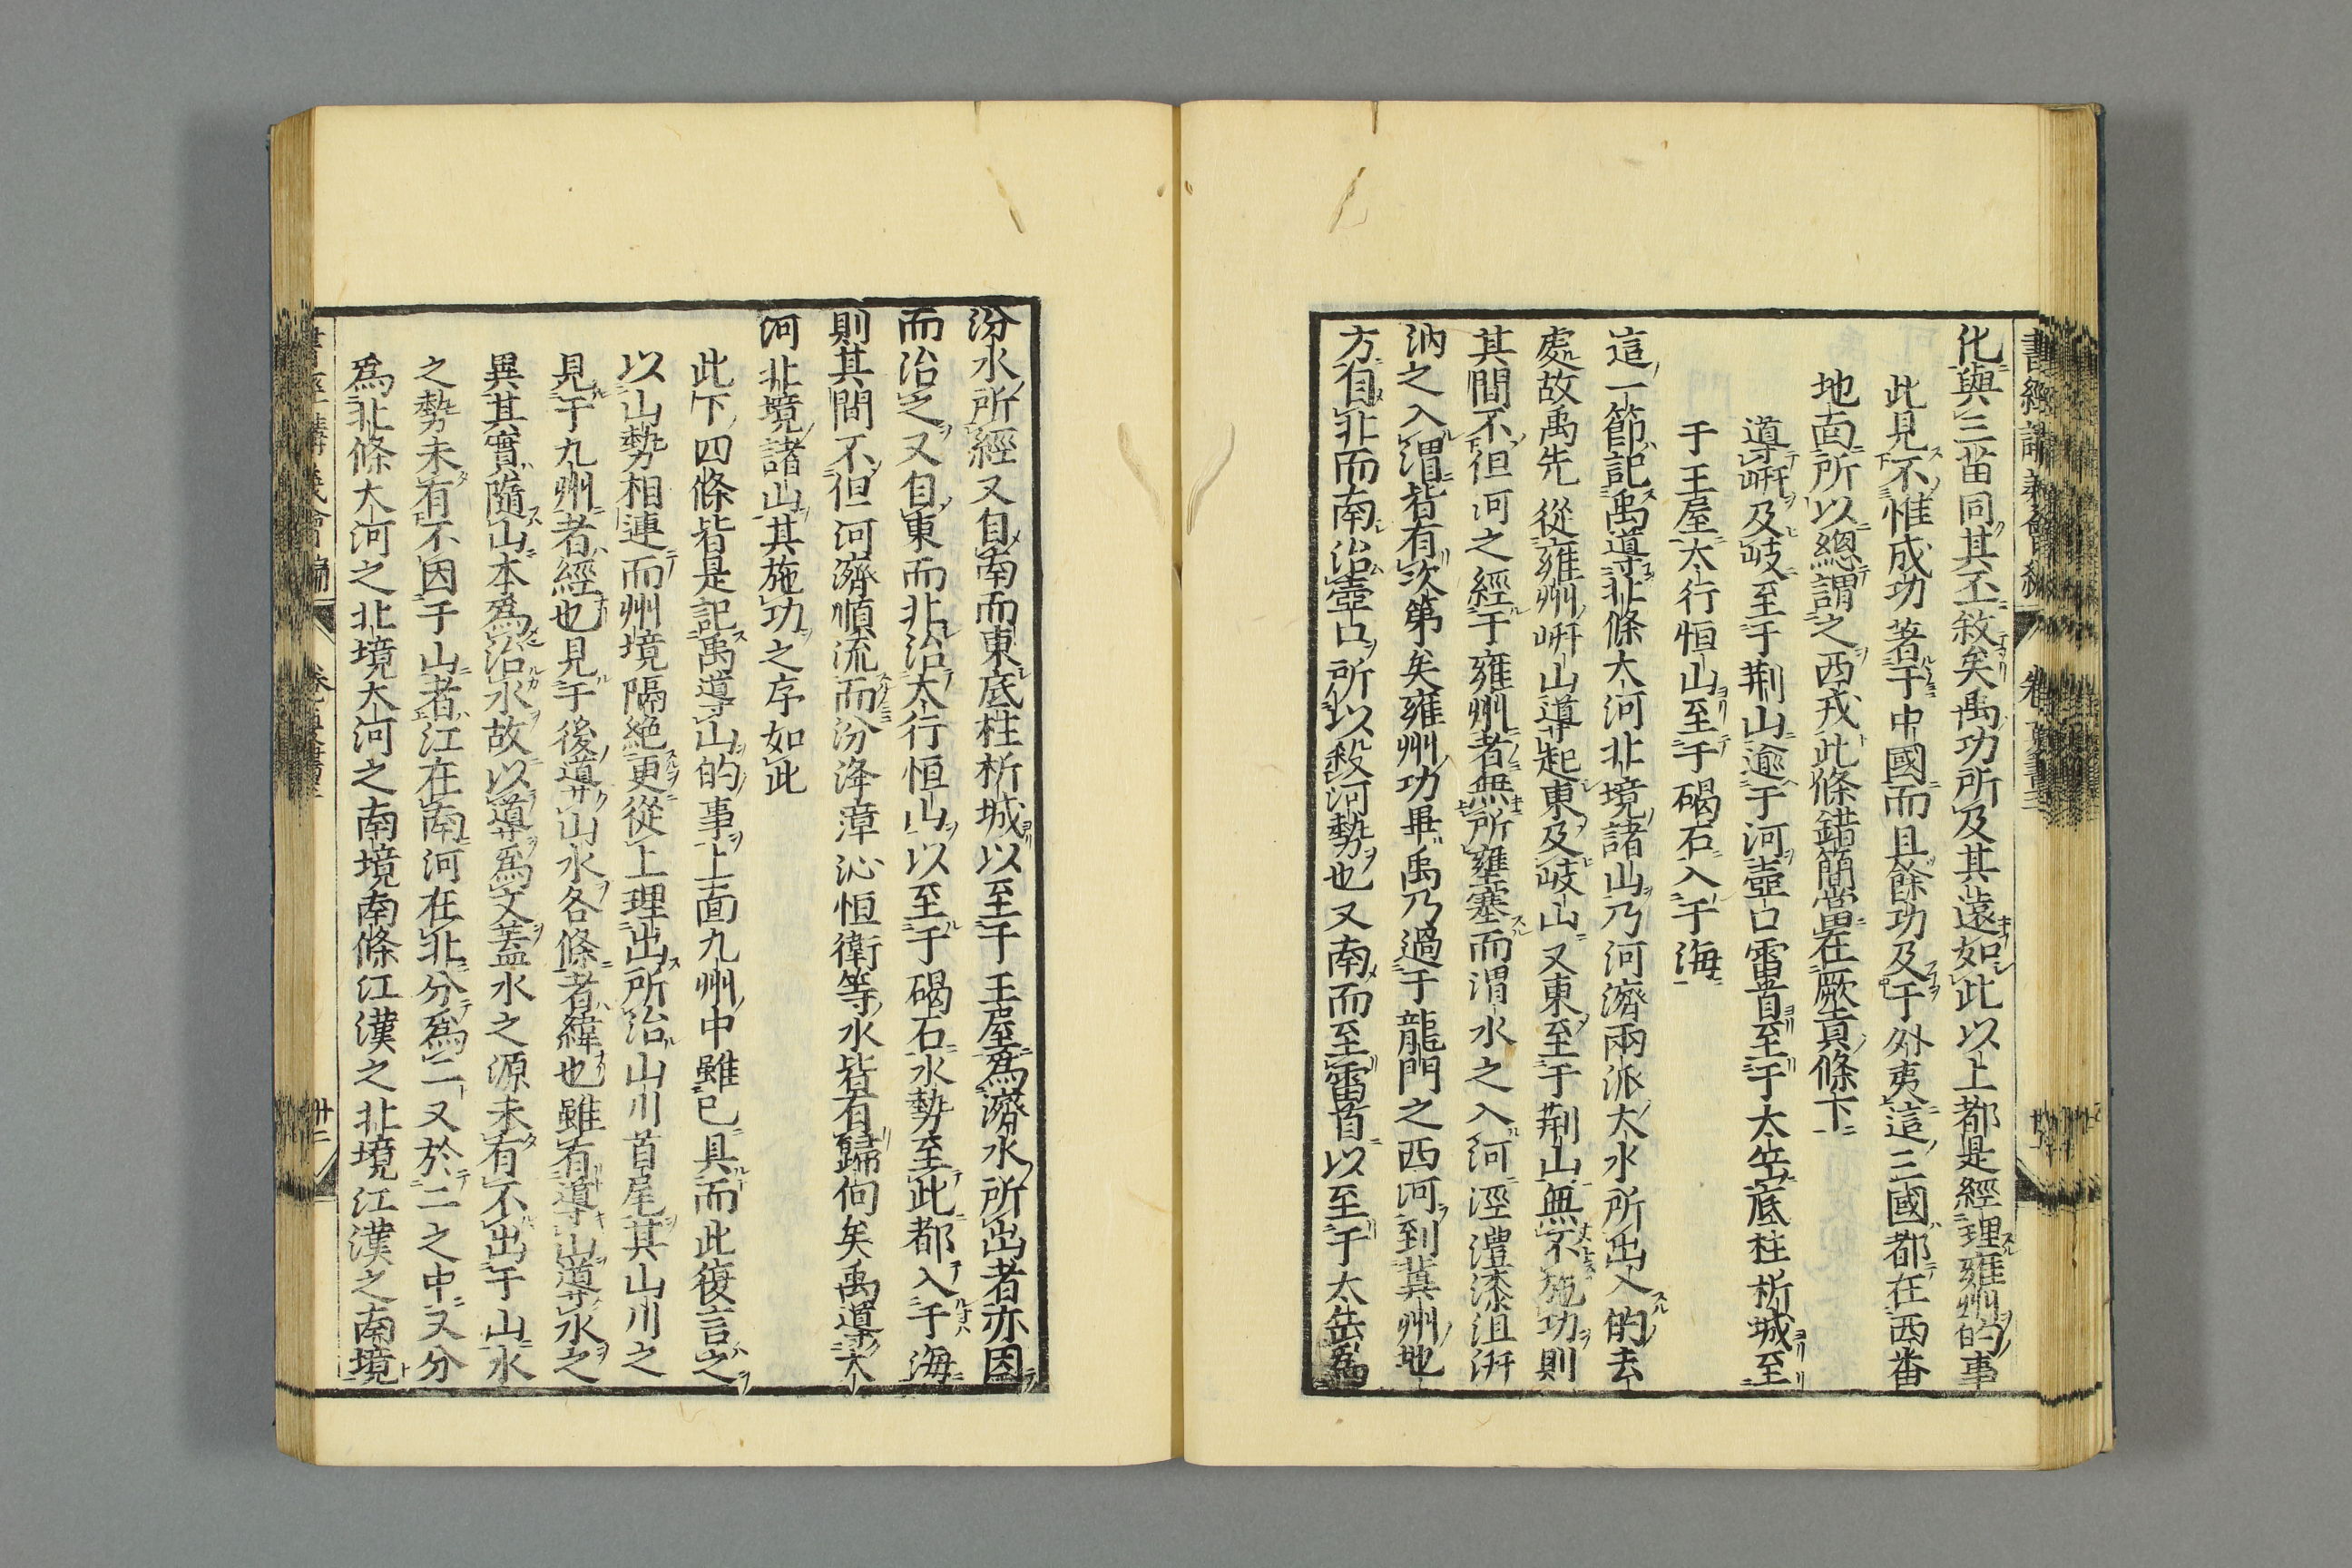 化與三苗同其丕敘矣禹功所及其遠如此以上都是經理雍州的事
此見不惟成功著于中國而且餘功及于外夷這三國都在西番
地面所以總謂之西戎此條錯簡當在厥貢條下
導岍及岐至于荆山逾于河壺口雷首至于太岳底柱析城至
于王屋太行恒山至于碣石入于海
這一節記禹導北條大河北境諸山乃河濟兩派大水所出入的去
處故禹先從雍州岍山導起東及岐山又東至于荆山無不施功則
其間不但河之經于雍州者無所壅塞而渭水之入河涇澧漆沮汧
汭之入渭皆有次第矣雍州功畢禹乃過于龍門之西河到冀州地
方自北而南治壺口所以殺河勢也又南而至雷首以至于太岳為
汾水所經又自南而東底柱析城以至于王屋為濟水所出者亦因
而治之又自東而北治太行恒山以至于碣石水勢至此都入于海
則其間不但河濟順流而汾洚漳沁恒衛等水皆有歸向矣禹導大
河北境諸山其施功之序如此
此下四條皆是記禹導山的事上面九州中雖已具而此復言之
以山勢相連而州境隔絶更從上理出所治山川首尾其山川之
見于九州者經也見于後導山水各條者緯也雖有導山導水之
異其實隨山本為治水故以導為文蓋水之源未有不出于山水
之勢未有不因于山者江在南河在北分為二又於二之中又分
為北條大河之北境大河之南境南條江漢之北境江漢之南境